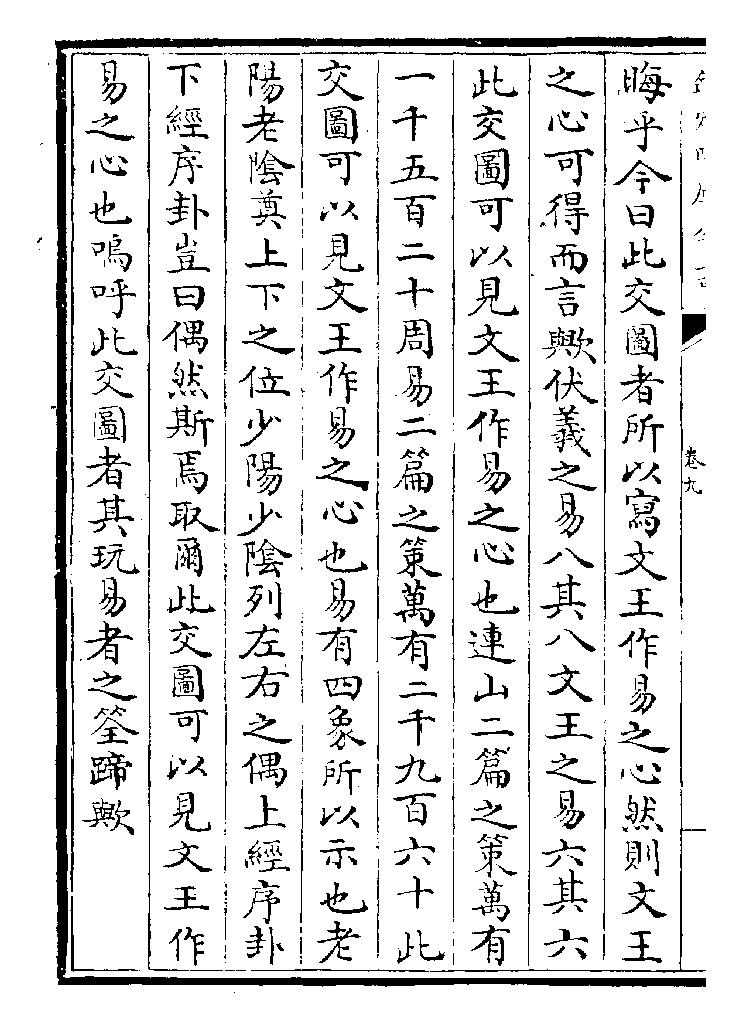 卷九
晦乎今日此交圖者所以寫文王作易之心然則文王
之心可得而言歟伏羲之易八其八文王之易六其六
此交圖可以見文王作易之心也連山二篇之策萬有
一千五百二十周易二篇之策萬有二千九百六十此
交圖可以見文王作易之心也易有四象所以示也老
陽老陰奠上下之位少陽少陰列左右之偶上經序卦
下經序卦豈曰偶然斯焉取爾此交圖可以見文王作
易之心也嗚呼此交圖者其玩易者之筌蹄歟